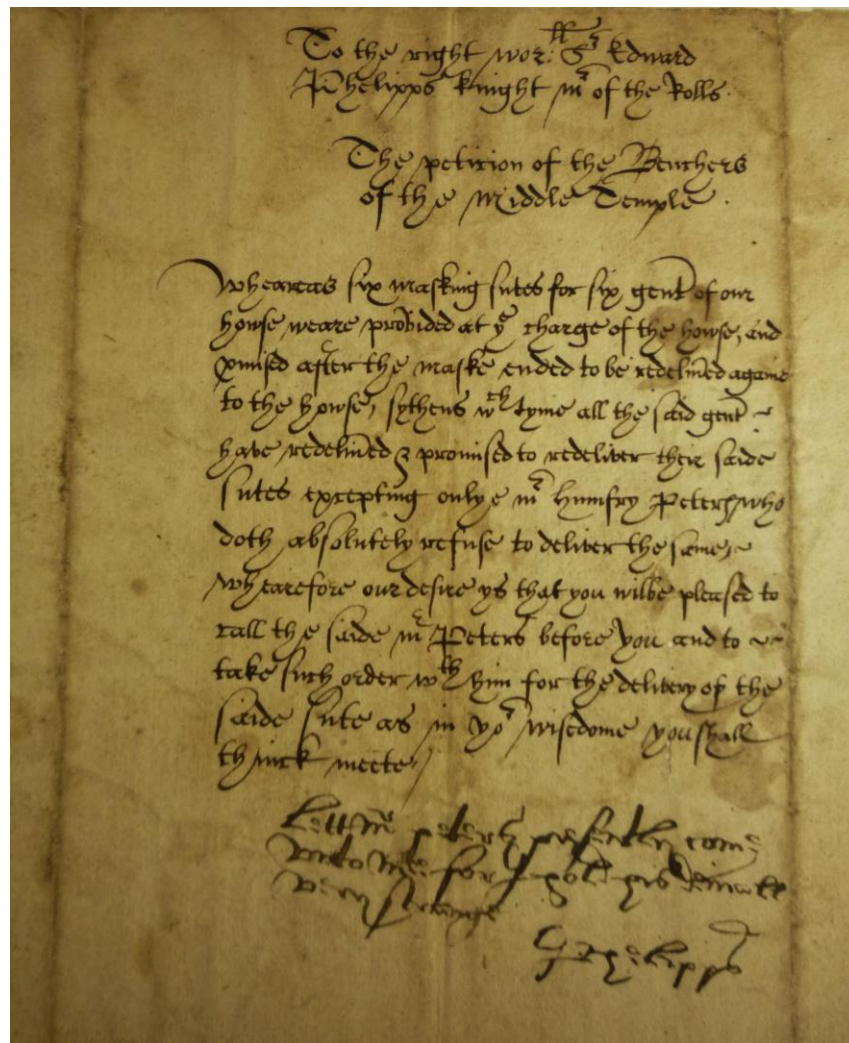 To the right wor:ll Sr Edward
Phelipps knight mr of the Rolls.
The peticion of the Benchers
of the Middle Temple.
Wheareas six masking sutes for six gent of our
howse weare provided at ye charge of the howse, and
pmised after the maske ended to be redelived againe
to the howse, sythens wch tyme all the said gent
have redelived & promised to redeliver their saide
sutes excepting onlye mr Humfry Peters who
doth absolutely refuse to deliver the same,
Whearefore our desire ys that you wilbe pleased to
call the saide mr Peters before you and to
take such order wth him for the delivery of the
saide sute as in yor wisedome you shall
thinck meete,
Lett mr peters presently come
vnto mee for I hold his deniall
very strange
E: phelipps